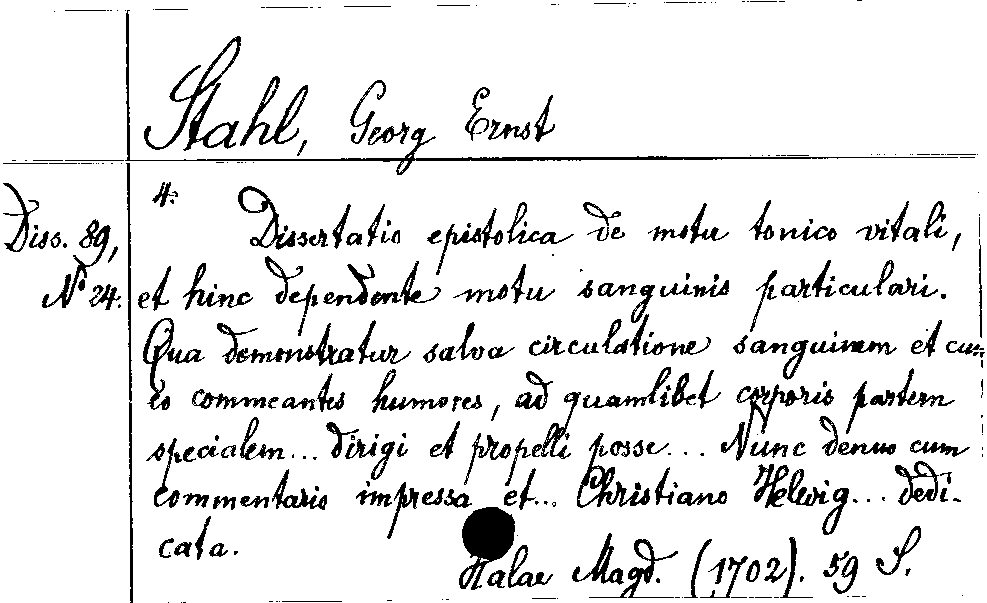 Stahl, Georg Ernst
4.
Diss. 89,
No 24.
Dissertatio epistolica de motu tonico vitali,
et hinc dependente motu sanguinis particulari.
Qua demonstratur salva circulatione sanguinem et cum
eo commeantes humores, ad quamlibet corporis partem
specialem... dirigi et propelli posse... Nunc denuo cum
commentario impressa et... Christiano Helwig... dedi-
cata.
Halae Magd. (1702). 59 S.